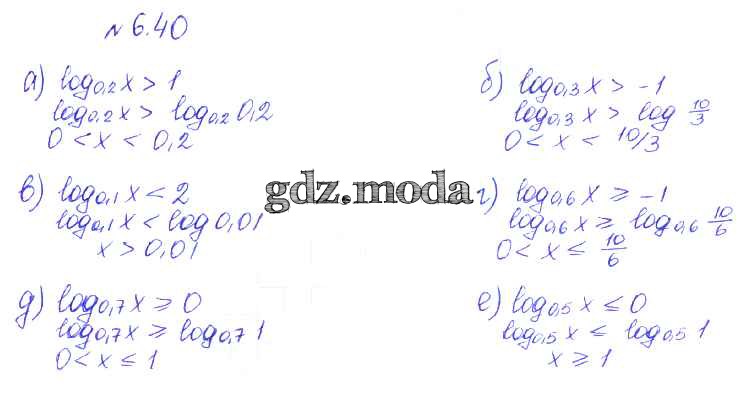 № 6.40
а) log₀,₂ x > 1
log₀,₂ x > log₀,₂ 0,2
0 < x < 0,2
б) log₀,₃ x > -1
log₀,₃ x > log 10/3
0 < x < 10/3
в) log₀,₁ x < 2
log₀,₁ x < log 0,01
x > 0,01
gdz.moda
г) log₀,₆ x ≥ -1
log₀,₆ x ≥ log₀,₆ 10/6
0 < x ≤ 10/6
д) log₀,₇ x ≥ 0
log₀,₇ x ≥ log₀,₇ 1
0 < x ≤ 1
е) log₀,₅ x ≤ 0
log₀,₅ x ≤ log₀,₅ 1
x ≥ 1